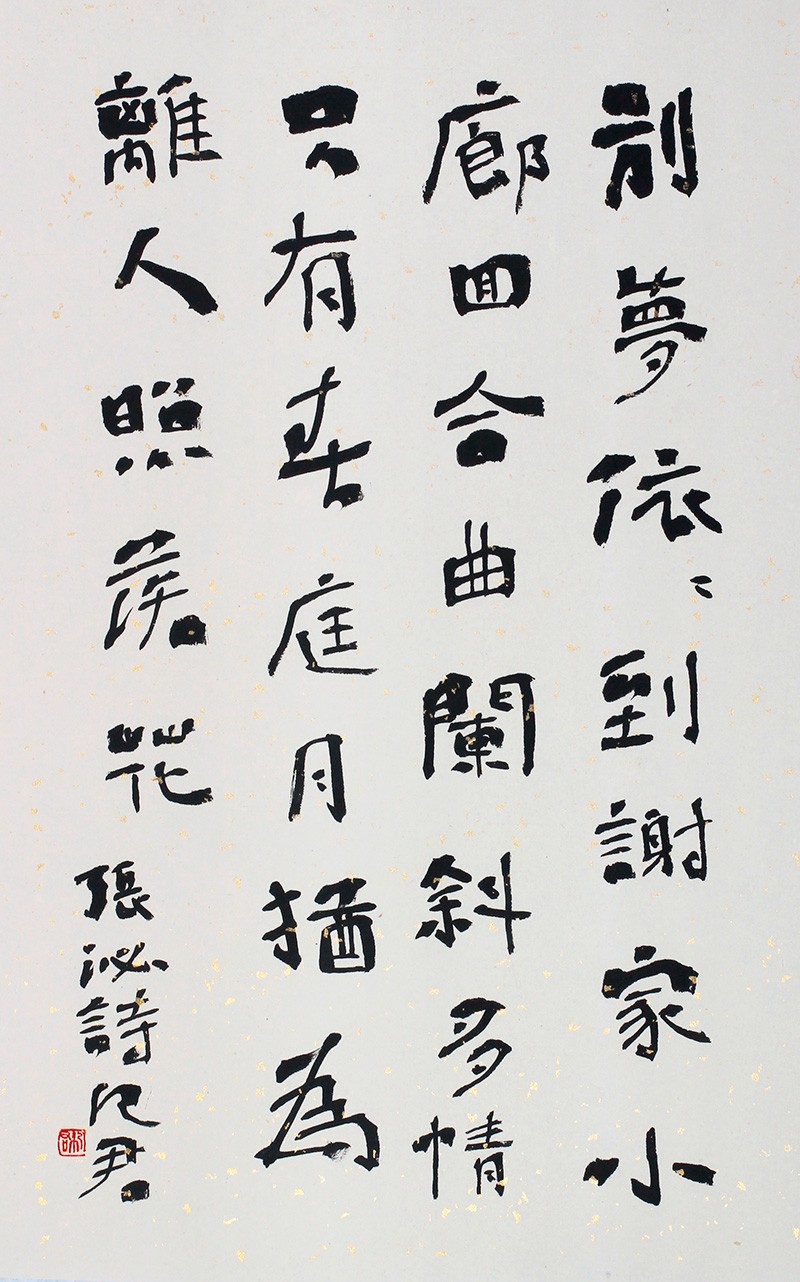 別夢依〻到謝家小
廊囬合曲闌斜多情
只有春庭月猶為
離人照落花
張泌詩君